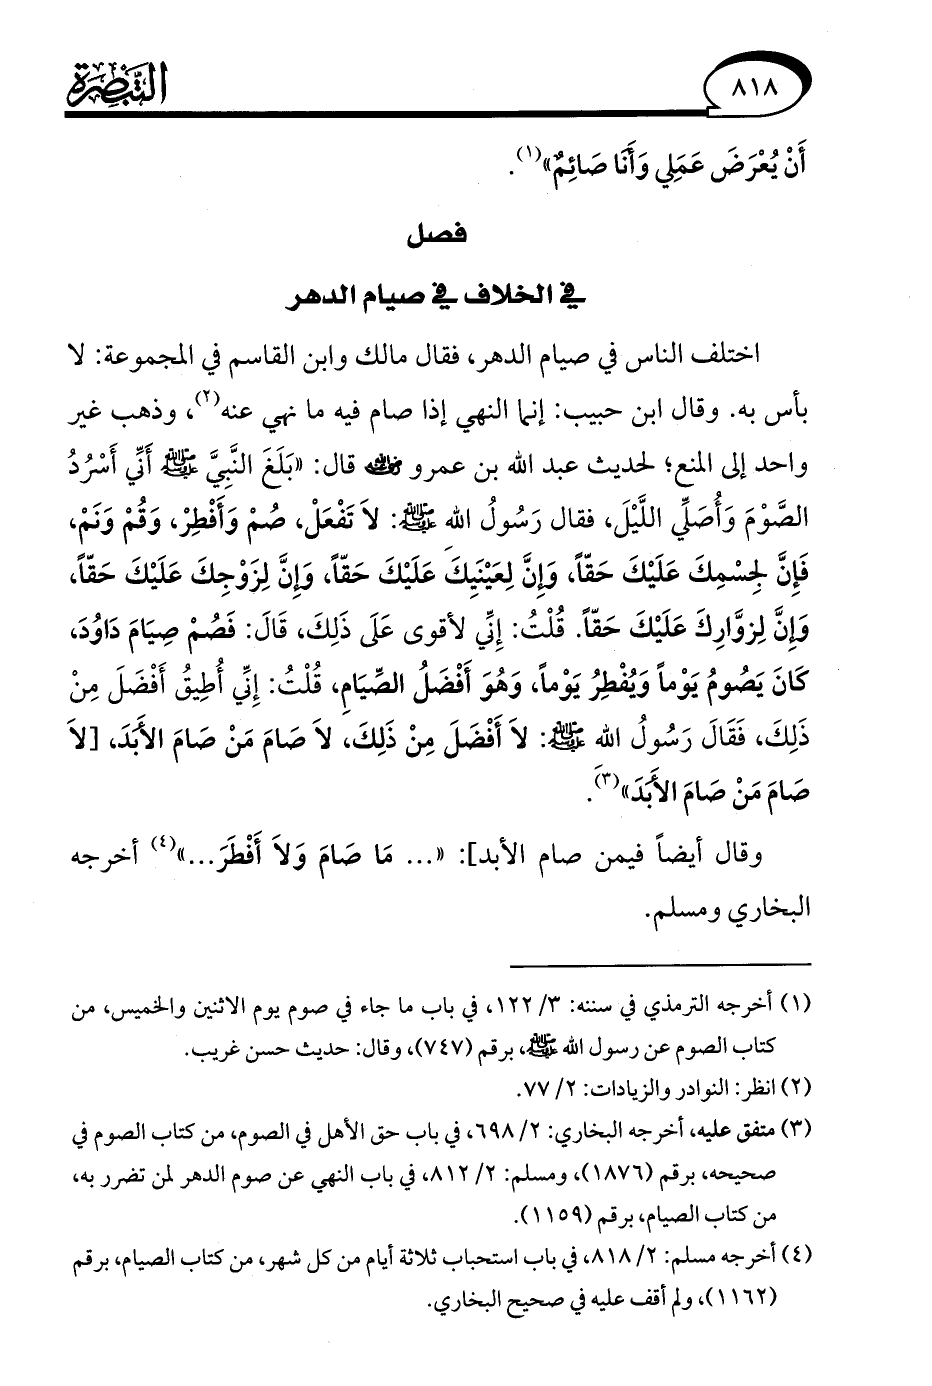 ٨١٨
التبصرة
أَنْ يُعْرَضَ عَمَلِي وَأَنَا صَائِمٌ»(١).
فصل
في الخلاف في صيام الدهر
اختلف الناس في صيام الدهر، فقال مالك وابن القاسم في المجموعة: لا
بأس به. وقال ابن حبيب: إنما النهي إذا صام فيه ما نهي عنه(٢)، وذهب غير
واحد إلى المنع؛ لحديث عبد الله بن عمرو رضي الله عنه قال: «بَلَغَ النَّبِيَّ ﷺ أَنِّي أَسْرُدُ
الصَّوْمَ وَأُصَلِّي اللَّيْلَ، فقال رَسُولُ الله ﷺ: لاَ تَفْعَلْ، صُمْ وَأَفْطِرْ، وَقُمْ وَنَمْ،
فَإِنَّ لِجِسْمِكَ عَلَيْكَ حَقّاً، وَإِنَّ لِعَيْنَيِكَ عَلَيْكَ حَقّاً، وَإِنَّ لِزَوْجِكَ عَلَيْكَ حَقّاً،
وَإِنَّ لِزوَّارِكَ عَلَيْكَ حَقّاً. قُلْتُ: إِنِّي لأقوى عَلَى ذَلِكَ، قَالَ: فَصُمْ صِيَامَ دَاوُدَ،
كَانَ يَصُومُ يَوْماً وَيُفْطِرُ يَوْماً، وَهُوَ أَفْضَلُ الصِّيَامِ، قُلْتُ: إِنِّي أُطِيقُ أَفْضَلَ مِنْ
ذَلِكَ، فَقَالَ رَسُولُ الله ﷺ: لاَ أَفْضَلَ مِنْ ذَلِكَ، لاَ صَامَ مَنْ صَامَ الأَبَدَ، [لاَ
صَامَ مَنْ صَامَ الأَبَدَ»(٣).
وقال أيضاً فيمن صام الأبد]: «... مَا صَامَ وَلاَ أَفْطَرَ...»(٤) أخرجه
البخاري ومسلم.
(١) أخرجه الترمذي في سننه: ٣/ ١٢٢، في باب ما جاء في صوم يوم الاثنين والخميس، من
كتاب الصوم عن رسول الله ﷺ، برقم (٧٤٧)، وقال: حديث حسن غريب.
(٢) انظر: النوادر والزيادات: ٢/ ٧٧.
(٣) متفق عليه، أخرجه البخاري: ٢/ ٦٩٨، في باب حق الأهل في الصوم، من كتاب الصوم في
صحيحه، برقم (١٨٧٦)، ومسلم: ٢/ ٨١٢، في باب النهي عن صوم الدهر لمن تضرر به،
من كتاب الصيام، برقم (١١٥٩).
(٤) أخرجه مسلم: ٢/ ٨١٨، في باب استحباب ثلاثة أيام من كل شهر، من كتاب الصيام، برقم
(١١٦٢)، ولم أقف عليه في صحيح البخاري.